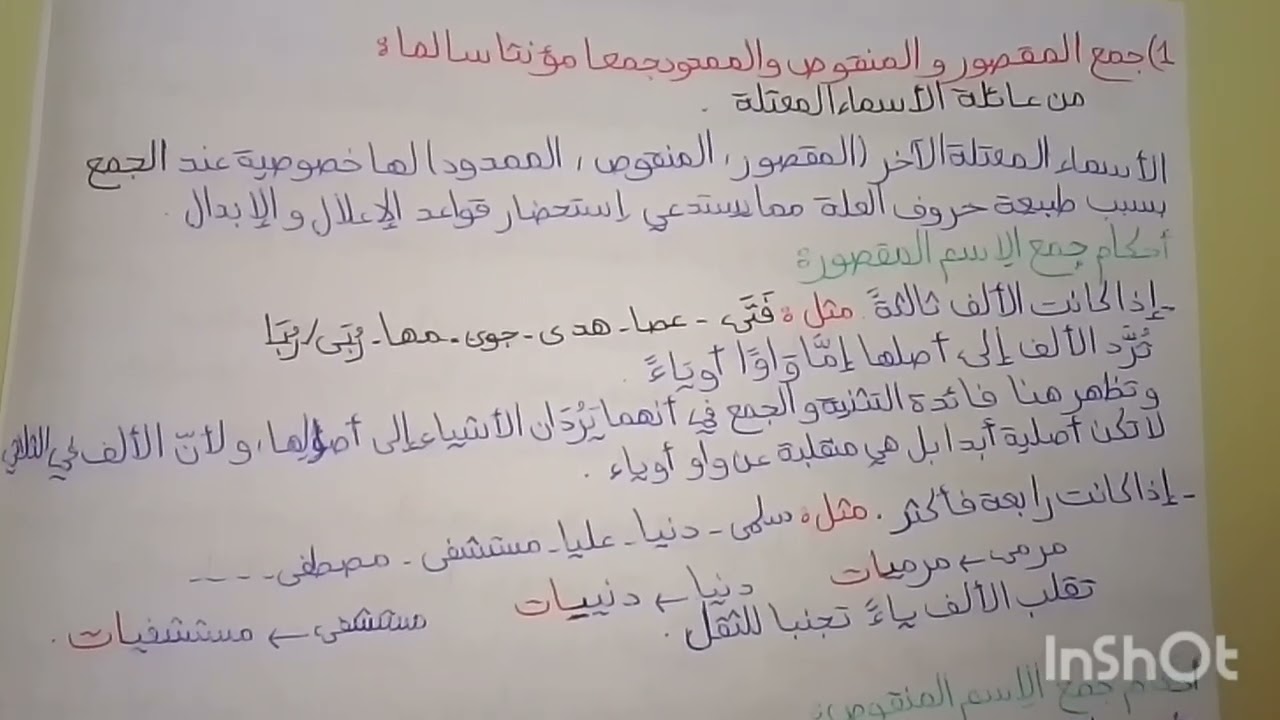 1) جمع المقصور والمنقوص والممدود جمعا مؤنثا سالما:
من عائلة الأسماء المعتلة.
الأسماء المعتلة الآخر (المقصور، المنقوص، الممدود) لها خصوصية عند الجمع
بسبب طبيعة حروف العلة مما يستدعي إستحضار قواعد الإعلال والإبدال.
أحكام جمع الإسم المقصور:
- إذا كانت الألف ثالثةً. مثل: فَتَى - عصا - هدى - جوى - مها - رُبَى/رُبَا
تُرّد الألف إلى أصلها إمَّا وَاوًا أوياءً.
وتظهر هنا فائدة التثنية والجمع في أنهما يَرُدَان الأشياء إلى أصولها، ولأنّ الألف في الثلاثي
لا تكن أصلية أبدا بل هي منقلبة عن واو أوياء.
- إذا كانت رابعة فأكثر. مثل: سلمى - دنيا - عليا - مستشفى - مصطفى - ....
مرمى ← مرميات
دنيا ← دنييات
مستشفى ← مستشفيات.
تقلب الألف ياءً تجنبا للثقل.
أحكام جمع الإسم المنقوص:
InShOt